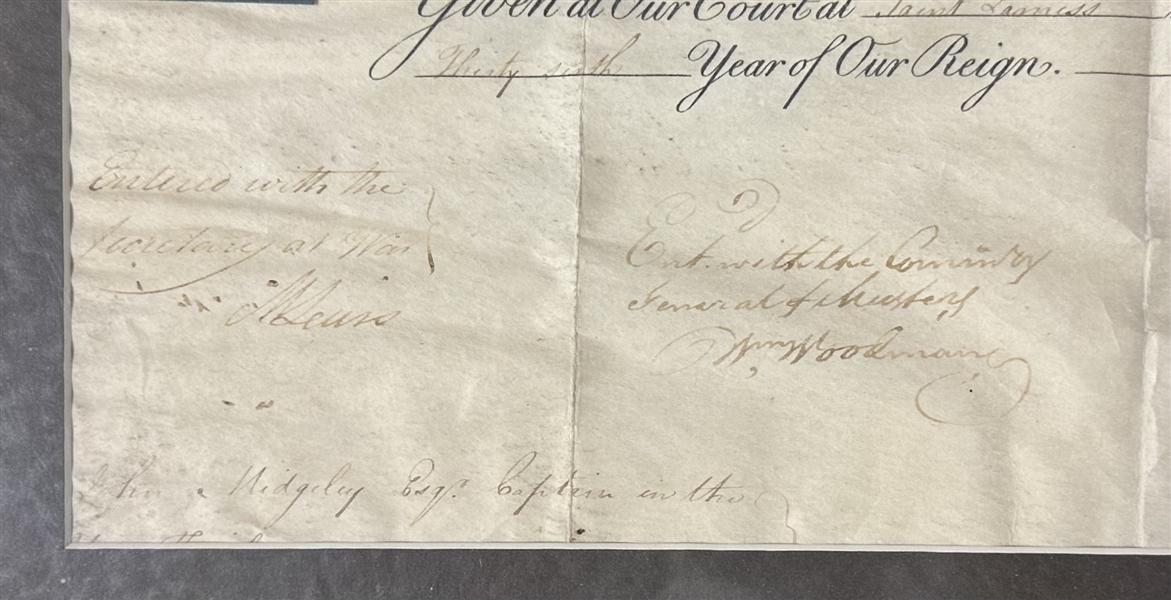 Given at Our Court at Saint James's
Thirty sixth Year of Our Reign.
Entered with the
Secretary at War
M Lewis
Ent. with the Commisry
General of Musters
Wm Woodman
John Ridgeley Esqr. Captain in the